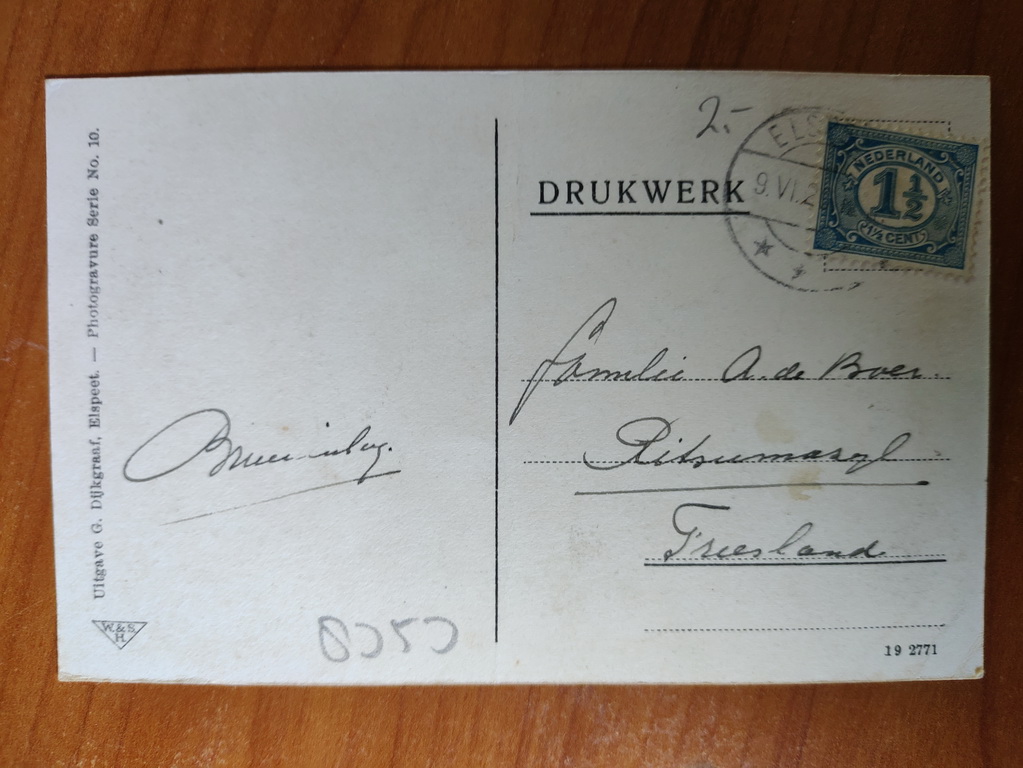 Uitgave G. Dijkgraaf, Elspeet. — Photogravure Serie No. 10.
W. & S.
H.
2.-
DRUKWERK
ELS
9.VI.2
NEDERLAND
1 1/2
1½ CENT
Familie A. de Boer.
Ritsumazyl
Friesland
19 2771